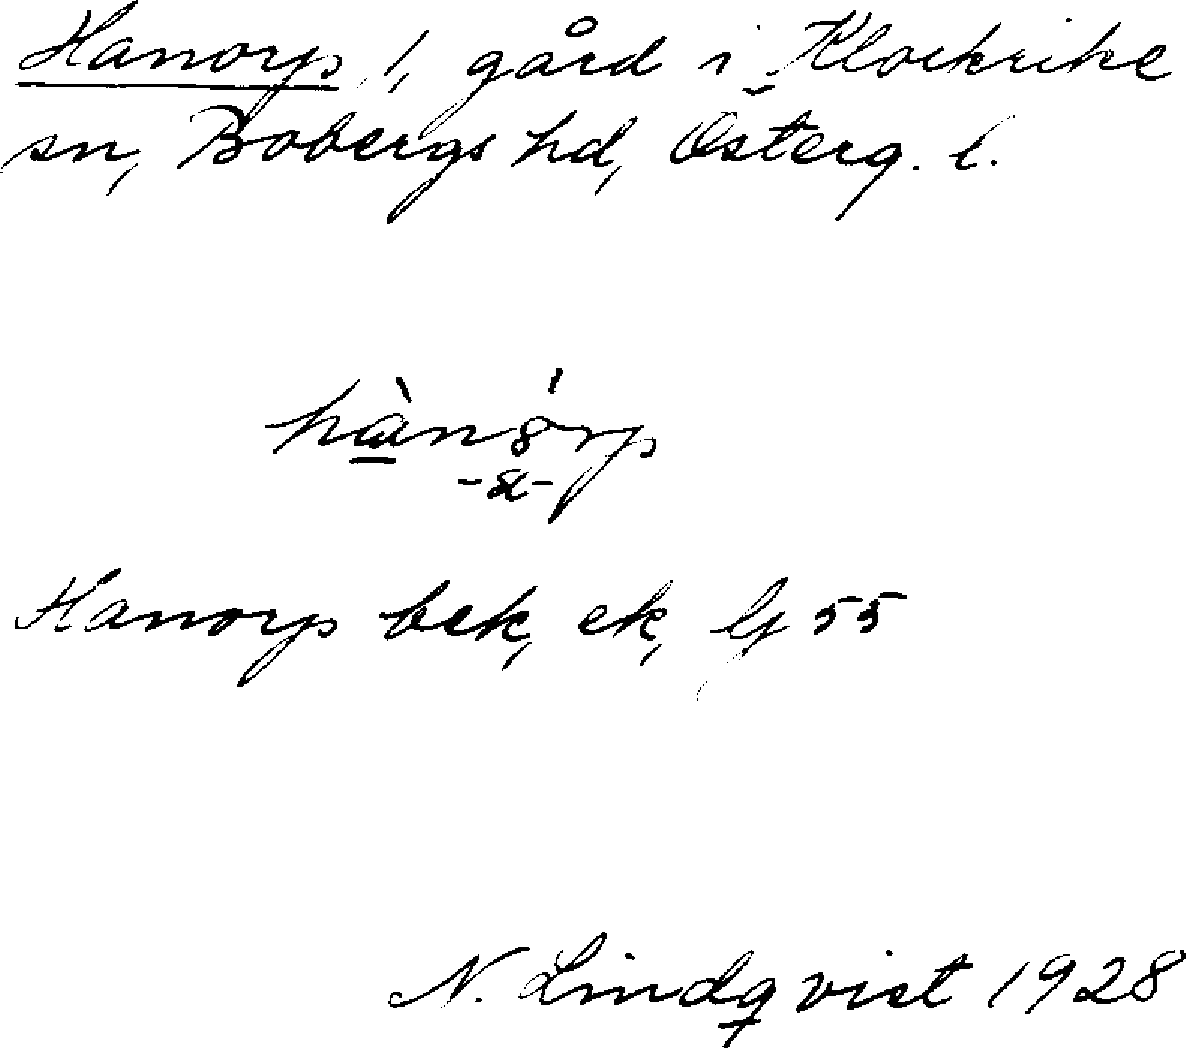 Hanorp 1, gård i Klockrike
sn, Bobergs hd, Österg. l.
Hanorp bek, ek, lj 55
N. Lindqvist 1928